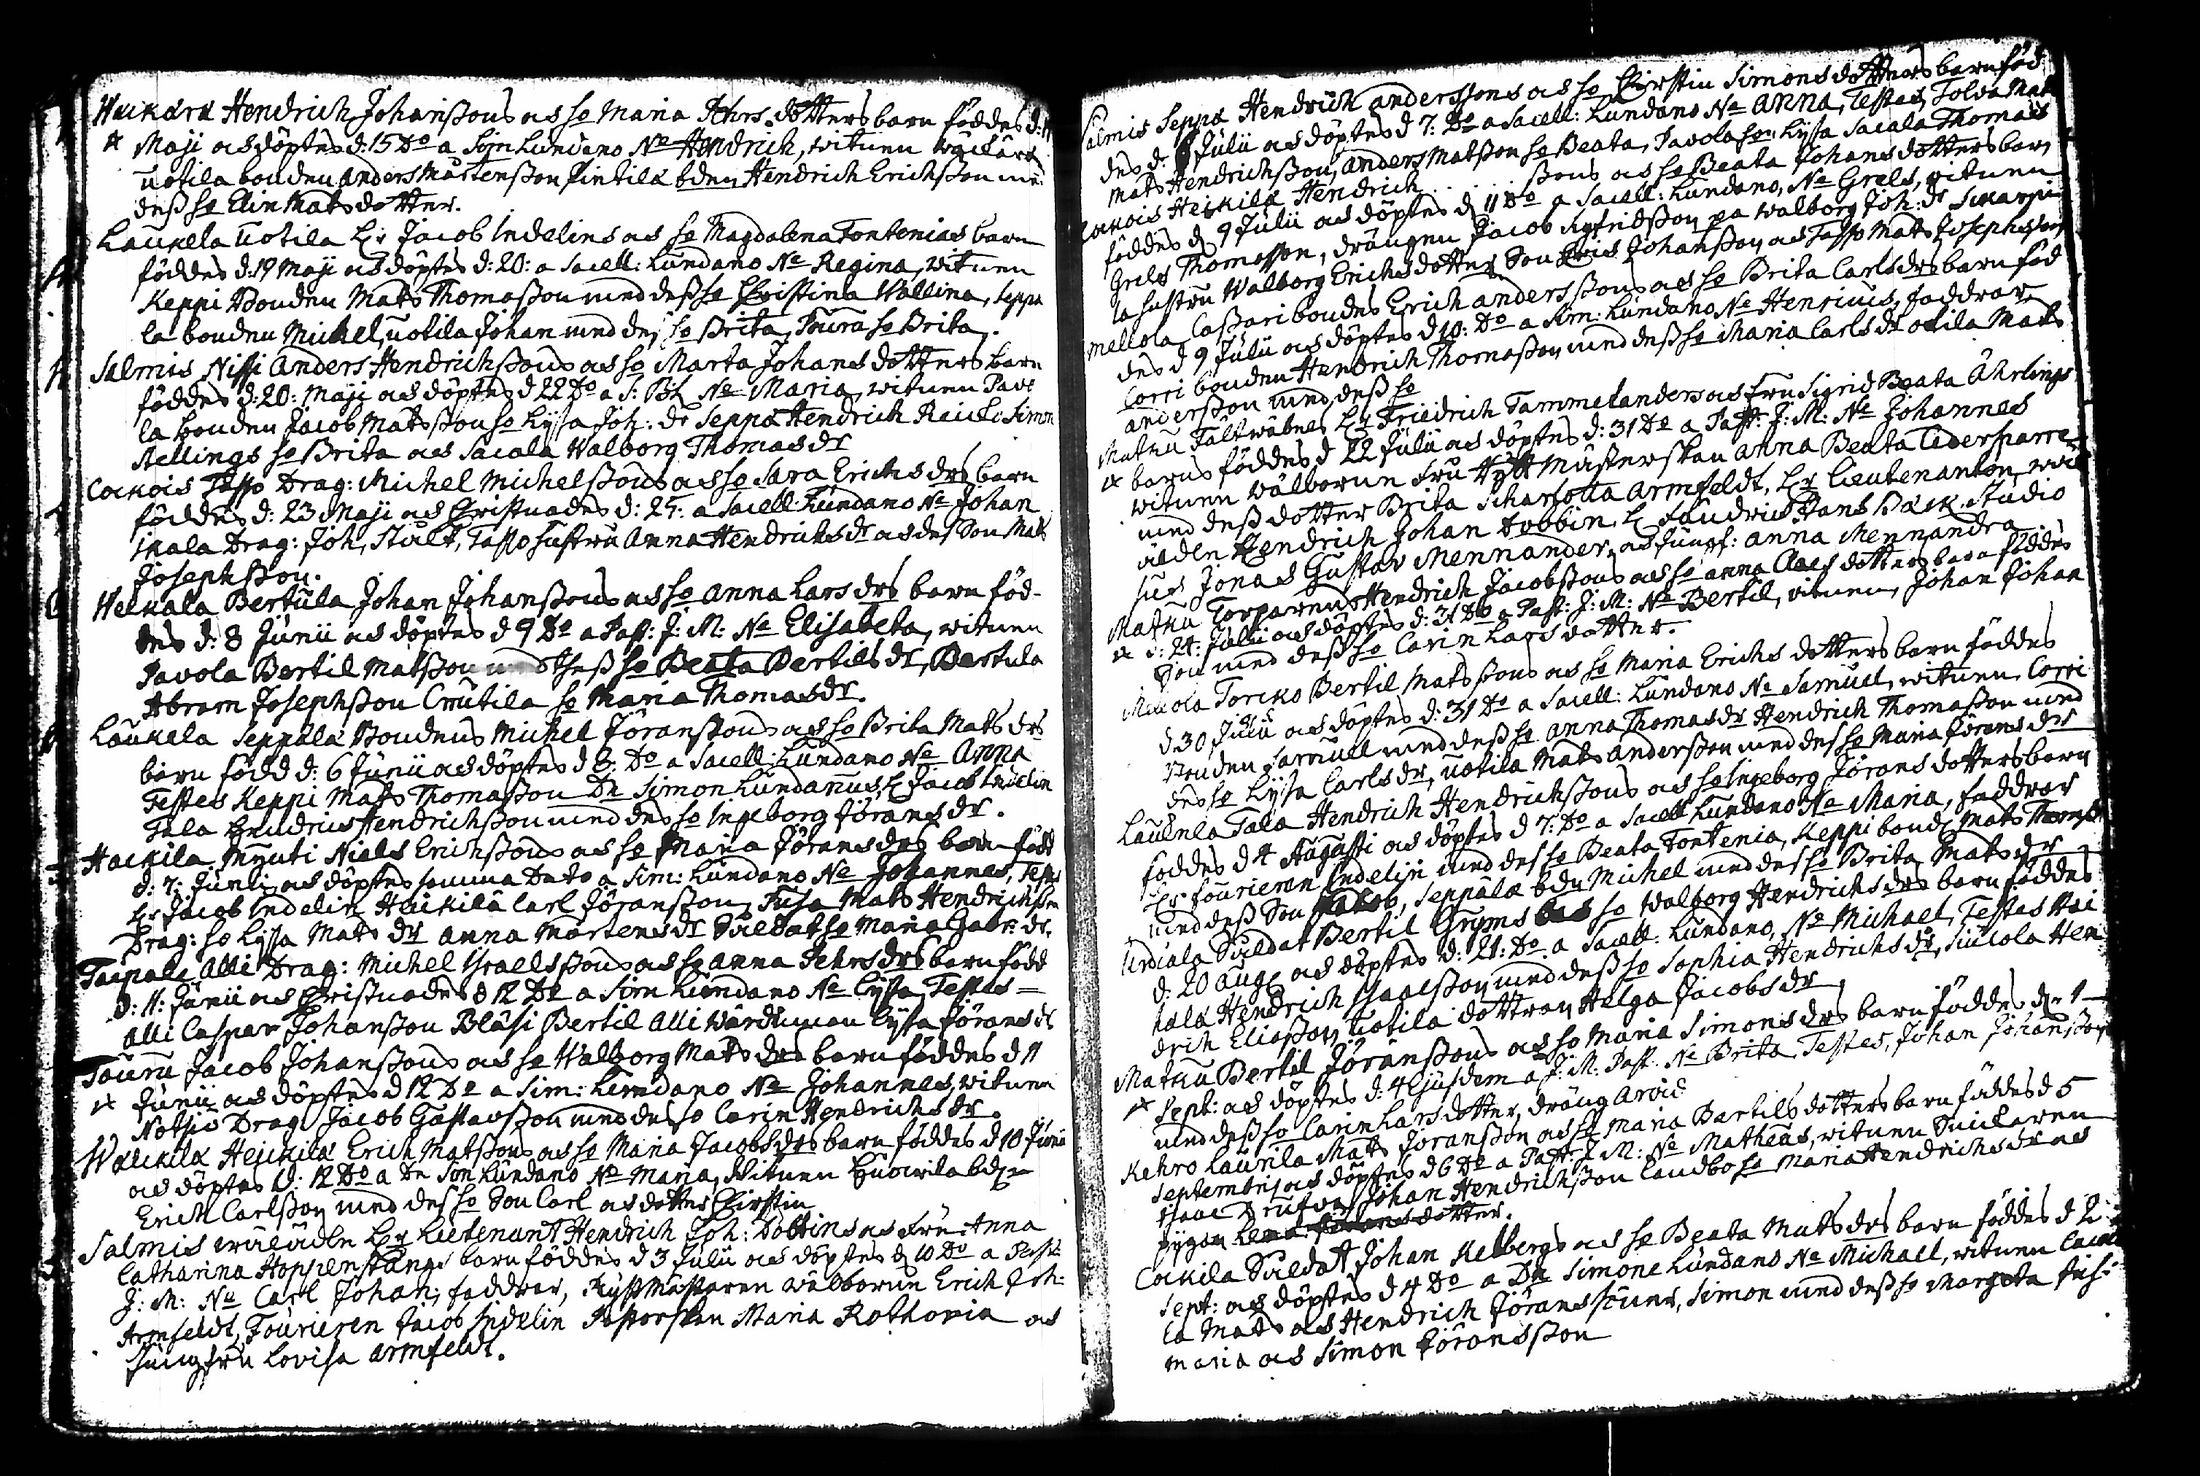 Hendrich Johanssons och ho Maria dotters barn föddes d:
Maji och döptes d: 15 Do a Sim Lundano Ne Hendrich, witnen
uotila bonden Anders Mårtensson bden Hendrich Erichsson med
dess ho Elin Mats dotter.
Laukela uotila Hr Jacob Indelins och ho Magdalena Fontenias barn
föddes d: 19 Maji och döptes d: 20: a Sacell: Lundano Ne Regina, witnen
Keppi Bonden Mats Thomasson med dess ho Christina Wallina, Seppä
la bonden Michel, uotila Johan med des ho Brita, Touru ho Brita.
Salmis Nissi Anders Hendrichssons och ho Marta Johans dotters barn
föddes d: 20: Maji och döptes d 22 Do a Ne Maria, witnen Pavo
la bonden Jacob Matsson ho Lysa Joh: dr Seppä Hendrich Simon
Stellings ho Brita och Sacala Walborg Thomas dr
Cockois Tasso Drag: Michel Michelssons och ho Sara Erichs drs barn
föddes d: 23 Maji och Christnades d: 25: a Sacell: Lundano Ne Johan
Skala Drag: Joh, Stult, Tasso hustru Anna Hendrichs dr och des Son Mats
Josephsson.
Heikala Bertula Johan Johanssons och ho Anna Lars drs barn föd-
des d: 8 Junii och döptes d 9 Do a Past: J: M: Ne Elisabeta, witnen
Pavola Bertil Matsson med thess ho Beata Bertils dr, Bertula
Abram Josephsson Cnutila ho Maria Thomas dr.
Laukela Seppälä Bondens Michel Jöranssons och ho Brita Mats drs
barn född d: 6 Junii och döptes d 8: Do a Sacell: Lundano Ne Anna
Testes Keppi Mats Thomasson Dn Simon Lundanus, Hr Jacob Indelin
Tala Hendrich Hendrichsson med des ho Ingeborg Jörans dr.
Hackila Niels Erichssons och ho Maria Jörans drs barn född
d: 7: Junii och döptes samma Dato a Sim: Lundano Ne Johannes, Testes
Hr Jacob Indelin Heickilä Carl Jöransson, Tusa Mats Hendrichsson
Drag: ho Lysa Mats dr Anna Mårtens dr Soldat ho Maria Gabr: dr.
Taipale Alli Drag: Michel Israelssons och ho Anna Pehrs drs barn född
d: 11: Junii och Christnades d 12 Do a Sim Lundano Ne Lysa, Testes
Alli Caspar Johansson Bläsi Bertil Alli Lysa Jörans dr
Touru Jacob Johanssons och ho Walborg Mats drs barn föddes d 11
Junii och döptes d 12 Do a Sim: Lundano Ne Johannes, witnen
Drag: Jacob Gustavsson med des ho Carin Hendrichs dr.
Heickilä Erich Matssons och ho Maria Jacobs drs barn föddes d 10 Junii
och döptes d: 12 Do a Dn Sim Lundano Ne Maria, Witnen bdn
Erich Carlsson med des ho Son Carl och dotter Chirstin
Salmis wäladle Hr Lieutenant Hendrich Joh: Dobbins och Fru Anna
Catharina Hoppenstangs barn föddes d 3 Julii och döptes d 10 Do a Past:
J: M: Ne Carl Johan, faddrar, Rystmästaren wälborne Erich Joh:
Armfeldt, Fourieren Jacob Indelin Pastorskan Maria Rothovia och
Jungfru Lovisa Armfeldt.
Salmis Seppä Hendrich Anderssons och ho Chirstin Simons dotters barn föd
des d: Julii och döptes d 7: Do a Sacell: Lundano Ne Anna, Testes,
Mats Hendrichsson, Anders Matsson ho Beata, Pavola ho Lysa Sacala Thomas
Cockois Heickilä Hendrich . . . . ssons och ho Beata Johans dotters barn
föddes d 9 Julii och döptes d 11 Do a Sacell: Lundano, Ne Grels, witnen
Grels Thomasson, drängen Jacob Sigfridsson pa Walborg Joh: dr
la hustru Walborg Erichsdotter Son Johansson och Tasso Mats Josephsson
Mellola Cassari bondes Erich Anderssons och ho Brita Carls drs barn föd
des d 9 Julii och döptes d 10: Do a Sim: Lundano Ne Henricus, faddrar
Corri bonden Hendrich Thomasson med dess ho Maria Carls dr Mats
Andersson med dess ho
Mathu Fältwäbels Hr Friedrich Tammelanders och Fru Sigrid Beata Ährlings
barns föddes d 22 Julii och döptes d: 31 Do a Past: J: M: Ne Johannes
witnen wälborne Fru Rytt Mästerskan Anna Beata Cedersparre
med dess dotter Brita Scharlotta Armfeldt, Hr Lieutenanten,
ädle Hendrich Johan Dobbin, Studio
sus Jonas Gustav Mennander, och Jungf: Anna Mennandra
Mathu Torparens Hendrich Jacobssons och ho Anna Claes dotters barn föddes
d: 24: Julii och döptes d: 31 Do a Past: J: M: Ne Bertil, witnen, Johan Johan
son med dess ho Carin Lars dotter.
Bertil Matssons och ho Maria Erichs dotters barn föddes
d. 30 Julii och döptes d: 31 Do a Sacell: Lundano Ne Samuel, witnen, Corri
bonden Samuel med dess ho Anna Thomas dr Hendrich Thomasson med
des ho Lysa Carls dr, uotila Mats Andersson med des ho Maria Jörans dr
Laukela Tala Hendrich Hendrichssons och ho Ingeborg Jörans dotters barn
föddes d 4 Augusti och döptes d 7: Do a Sacell Lundano Ne Maria, faddrar
Hr Fourieren Indelin med des ho Beata Fontenia, Keppi bond Mats Thomss:
med dess Son Jakob, Seppälä bdn Michel med des ho Brita Mats dr
Soldat Bertil Gryms och ho Walborg Hendrichs drs barn föddes
d: 20 Aug: och döptes d: 21: Do a Sacell: Lundano, Ne Michael, Testes Hei
kala Hendrich Isaacsson med dess ho Sophia Hendrichs dr, Hen
drich Eliasson, uotila dottran Helga Jacobs dr
Mathu Bertil Jöranssons och ho Maria Simons drs barn föddes d: 1
Sept: och döptes d: 4 Ejusdem a J: M: Past: Ne Brita, Testes, Johan Johansson
med dess ho Carin Lars dotter, dräng Arvid
Kehro Laurila Mats Jöransson och ho Maria Bertils dotters barn föddes d 5
Septembris och döptes d 6 Do a Past: J: M: Ne Matheus, witnen
Isaac Johan Hendrichsson Landbo ho Maria Hendrichs dr och
pygan Lena Jörans dotter.
Cockila Soldat Johan Kelbergs och ho Beata Mats drs barn föddes d 2
Sept: och döptes d 4 Do a Dn Simone Lundano Ne Michael, witnen
la Mats och Hendrich Jöranssöner, Simon med dess ho Margeta
Maria och Simon Jöransson